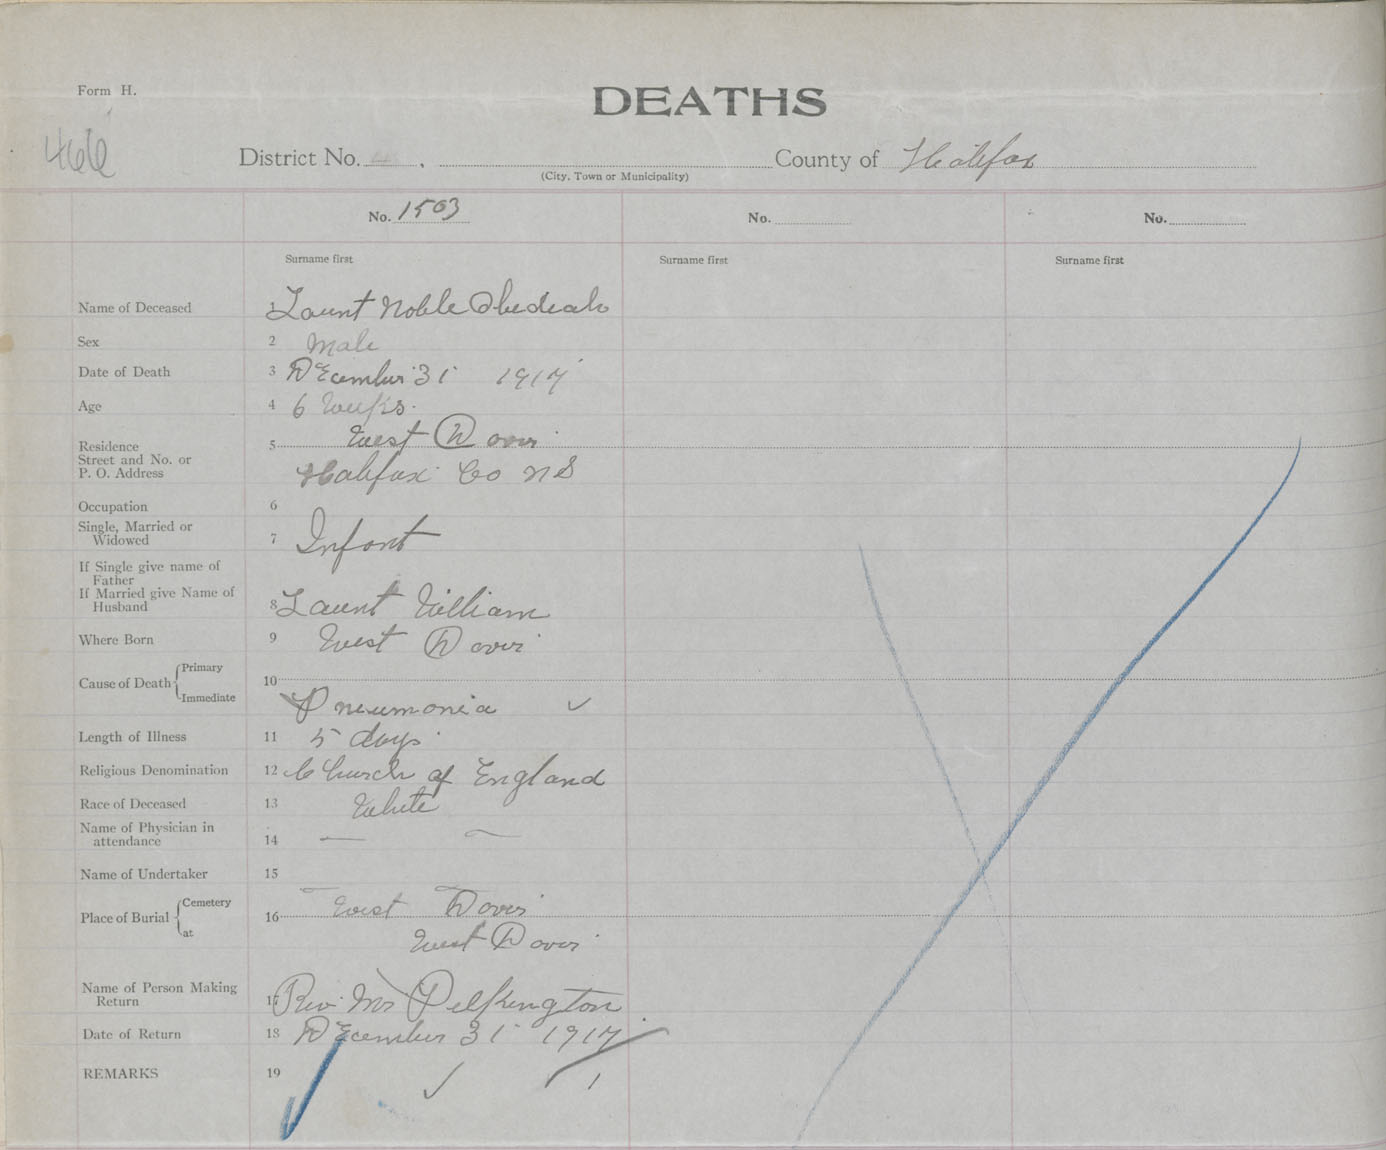 Form H.
DEATHS
466
District No. , County of Halifax
(City, Town or Municipality)
No. 1503 No. No.
Surname first Surname first Surname first
Name of Deceased 1 Launt Noble Obediah
Sex 2 Male
Date of Death 3 DEcember 31 1917
Age 4 6 weeks.
Residence 5 West Dover
Street and No. or
P. O. Address Halifax Co NS
Occupation 6
Single, Married or
Widowed 7 Infant
If Single give name of
Father
If Married give Name of
Husband 8 Launt William
Where Born 9 West Dover
Cause of Death Primary 10
Immediate Pneumonia ✓
Length of Illness 11 5 days
Religious Denomination 12 Church of England
Race of Deceased 13 White
Name of Physician in
attendance 14 — —
Name of Undertaker 15
Place of Burial Cemetery 16 West Dover
at West Dover
Name of Person Making
Return 17 Rev. Mr Pelkington
Date of Return 18 DEcember 31 1917
REMARKS 19